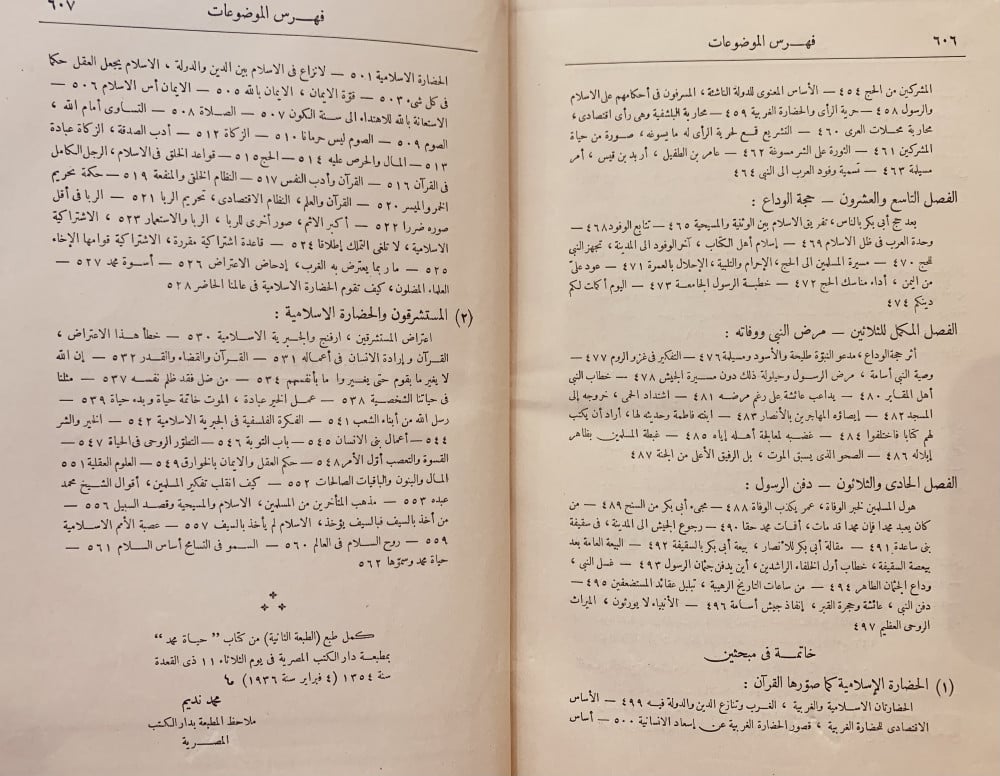 ٦٠٦ فهـرس الموضوعات
المشركين من الحج ٤٥٤ — الأساس المعنوى للدولة الناشئة، المسرفون فى أحكامهم على الاسلام
والرسول ٤٥٨ — حرية الرأى والحضارة الغربية ٤٥٩ — محاربة البلشفية وهى رأى اقتصادى،
محاربة محلات العرى ٤٦٠ — التشريع قمع لحرية الرأى له ما يسوغه، صورة من حياة
المشركين ٤٦١ — الثورة على الشر مسوغة ٤٦٢ — عامر بن الطفيل، أربد بن قيس، أمر
مسيلمة ٤٦٣ — تسمية وفود العرب الى النبى ٤٦٤
الفصل التاسع والعشرون — حجة الوداع :
بعد حج أبى بكر بالناس، تفريق الاسلام بين الوثنية والمسيحية ٤٦٥ — تتابع الوفود ٤٦٨ —
وحدة العرب فى ظل الاسلام ٤٦٩ — إسلام أهل الكتاب، آخر الوفود الى المدينة، تجهز النبى
للحج ٤٧٠ — مسيرة المسلمين الى الحج، الإحرام والتلبية، الإحلال بالعمرة ٤٧١ — عود علىّ
من اليمن، أداء مناسك الحج ٤٧٢ — خطبة الرسول الجامعة ٤٧٣ — اليوم أكملت لكم
دينكم ٤٧٤
الفصل المكمل للثلاثين — مرض النبى ووفاته :
أثر حجة الوداع، مدعو النبوّة طليحة والأسود ومسيلمة ٤٧٦ — التفكير فى غزو الروم ٤٧٧ —
وصية النبى أسامة، مرض الرسول وحيلولة ذلك دون مسيرة الجيش ٤٧٨ — خطاب النبى
أهل المقابر ٤٨٠ — يداعب عائشة على رغم مرضه ٤٨١ — اشتداد الحمى، خروجه إلى
المسجد ٤٨٢ — إيصاؤه المهاجرين بالأنصار ٤٨٣ — ابنته فاطمة وحديثه لها، أراد أن يكتب
لهم كتابا فاختلفوا ٤٨٤ — غضبه لمعالجة أهله إياه ٤٨٥ — غبطة المسلمين بظاهر
إبلاله ٤٨٦ — الصحو الذى يسبق الموت، بل الرفيق الأعلى من الجنة ٤٨٧
الفصل الحادى والثلاثون — دفن الرسول :
هول المسلمين لخبر الوفاة، عمر يكذب الوفاة ٤٨٨ — مجىء أبى بكر من السنح ٤٨٩ — من
كان يعبد محمدا فإن محمدا قد مات، أفمات محمد حقا ٤٩٠ — رجوع الجيش الى المدينة، فى سقيفة
بنى ساعدة ٤٩١ — مقالة أبى بكر للأنصار، بيعة أبى بكر بالسقيفة ٤٩٢ — البيعة العامة بعد
بيعة السقيفة، خطاب أول الخلفاء الراشدين، أين يدفن جثمان الرسول ٤٩٣ — غسل النبى،
وداع الجثمان الطاهر ٤٩٤ — من ساعات التاريخ الرهيبة، تبلبل عقائد المستضعفين ٤٩٥ —
دفن النبى، عائشة وحجرة القبر، إنفاذ جيش أسامة ٤٩٦ — الأنبياء لا يورثون، الميراث
الروحى العظيم ٤٩٧
خاتمة فى مبحثين
(١) الحضارة الإسلامية كما صوّرها القرآن :
الحضارتان الاسلامية والغربية، الغرب وتنازع الدين والدولة فيه ٤٩٩ — الأساس
الاقتصادى للحضارة الغربية، قصور الحضارة الغربية عن إسعاد الانسانية ٥٠٠ — أساس
فهـرس الموضوعات ٦٠٧
الحضارة الاسلامية ٥٠١ — لا نزاع فى الاسلام بين الدين والدولة، الاسلام يجعل العقل حكما
فى كل شىء ٥٠٣ — قوّة الايمان، الايمان بالله ٥٠٥ — الايمان أس الاسلام ٥٠٦ —
الاستعانة بالله للاهتداء الى سنة الكون ٥٠٧ — الصلاة ٥٠٨ — التساوى أمام الله،
الصوم ٥٠٩ — الصوم ليس حرمانا ٥١٠ — الزكاة ٥١٢ — أدب الصدقة، الزكاة عبادة
٥١٣ — المال والحرص عليه ٥١٤ — الحج ٥١٥ — قواعد الخلق فى الاسلام، الرجل الكامل
فى القرآن ٥١٦ — القرآن وأدب النفس ٥١٧ — النظام الخلقى والمنفعة ٥١٩ — حكمة تحريم
الخمر والميسر ٥٢٠ — القرآن والعلم، النظام الاقتصادى، تحريم الربا ٥٢١ — الربا فى أقل
صوره ضررا ٥٢٢ — أكبر الاثم، صور أخرى للربا، الربا والاستعمار ٥٢٣ — الاشتراكية
الاسلامية، لا تلغى التملك إطلاقا ٥٢٤ — قاعدة اشتراكية مقررة، الاشتراكية قوامها الإخاء
٥٢٥ — ما ربما يعترض به الغرب، إدحاض الاعتراض ٥٢٦ — أسوة محمد ٥٢٧ —
العلماء المضللون، كيف تقوم الحضارة الاسلامية فى عالمنا الحاضر ٥٢٨
(٢) المستشرقون والحضارة الاسلامية :
اعتراض المستشرقين، ارفنج والجبرية الاسلامية ٥٣٠ — خطأ هذا الاعتراض،
القرآن وإرادة الانسان فى أعماله ٥٣١ — القرآن والقضاء والقدر ٥٣٢ — إن الله
لا يغير ما بقوم حتى يغيروا ما بأنفسهم ٥٣٤ — من ضل فقد ظلم نفسه ٥٣٧ — مثلنا
فى حياتنا الشخصية ٥٣٨ — عمل الخير عبادة، الموت خاتمة حياة وبدء حياة ٥٣٩ —
رسل الله من أبناء الشعب ٥٤١ — الفكرة الفلسفية فى الجبرية الاسلامية ٥٤٢ — الخير والشر
٥٤٤ — أعمال بنى الانسان ٥٤٥ — باب التوبة ٥٤٦ — التطوّر الروحى فى الحياة ٥٤٧ —
القسوة والتعصب أوّل الأمر ٥٤٨ — حكم العقل والايمان بالخوارق ٥٤٩ — العلوم العقلية ٥٥١
المال والبنون والباقيات الصالحات ٥٥٢ — كيف انقلب تفكير المسلمين، أقوال الشيخ محمد
عبده ٥٥٣ — مذهب المتأخرين من المسلمين، الاسلام والمسيحية وقصد السبيل ٥٥٦ —
من أخذ بالسيف فبالسيف يؤخذ، الاسلام لم يأخذ بالسيف ٥٥٧ — عصبة الأمم الاسلامية
٥٥٩ — روح السلام فى العالم ٥٦٠ — السمو فى التسامح أساس السلام ٥٦١ —
حياة محمد وسموّها ٥٦٢
كمل طبع (الطبعة الثانية) من كتاب ”حياة محمد“
بمطبعة دار الكتب المصرية فى يوم الثلاثاء ١١ ذى القعدة
سنة ١٣٥٤ (٤ فبراير سنة ١٩٣٦)
محمد نديم
ملاحظ المطبعة بدار الكتب
المصـرية